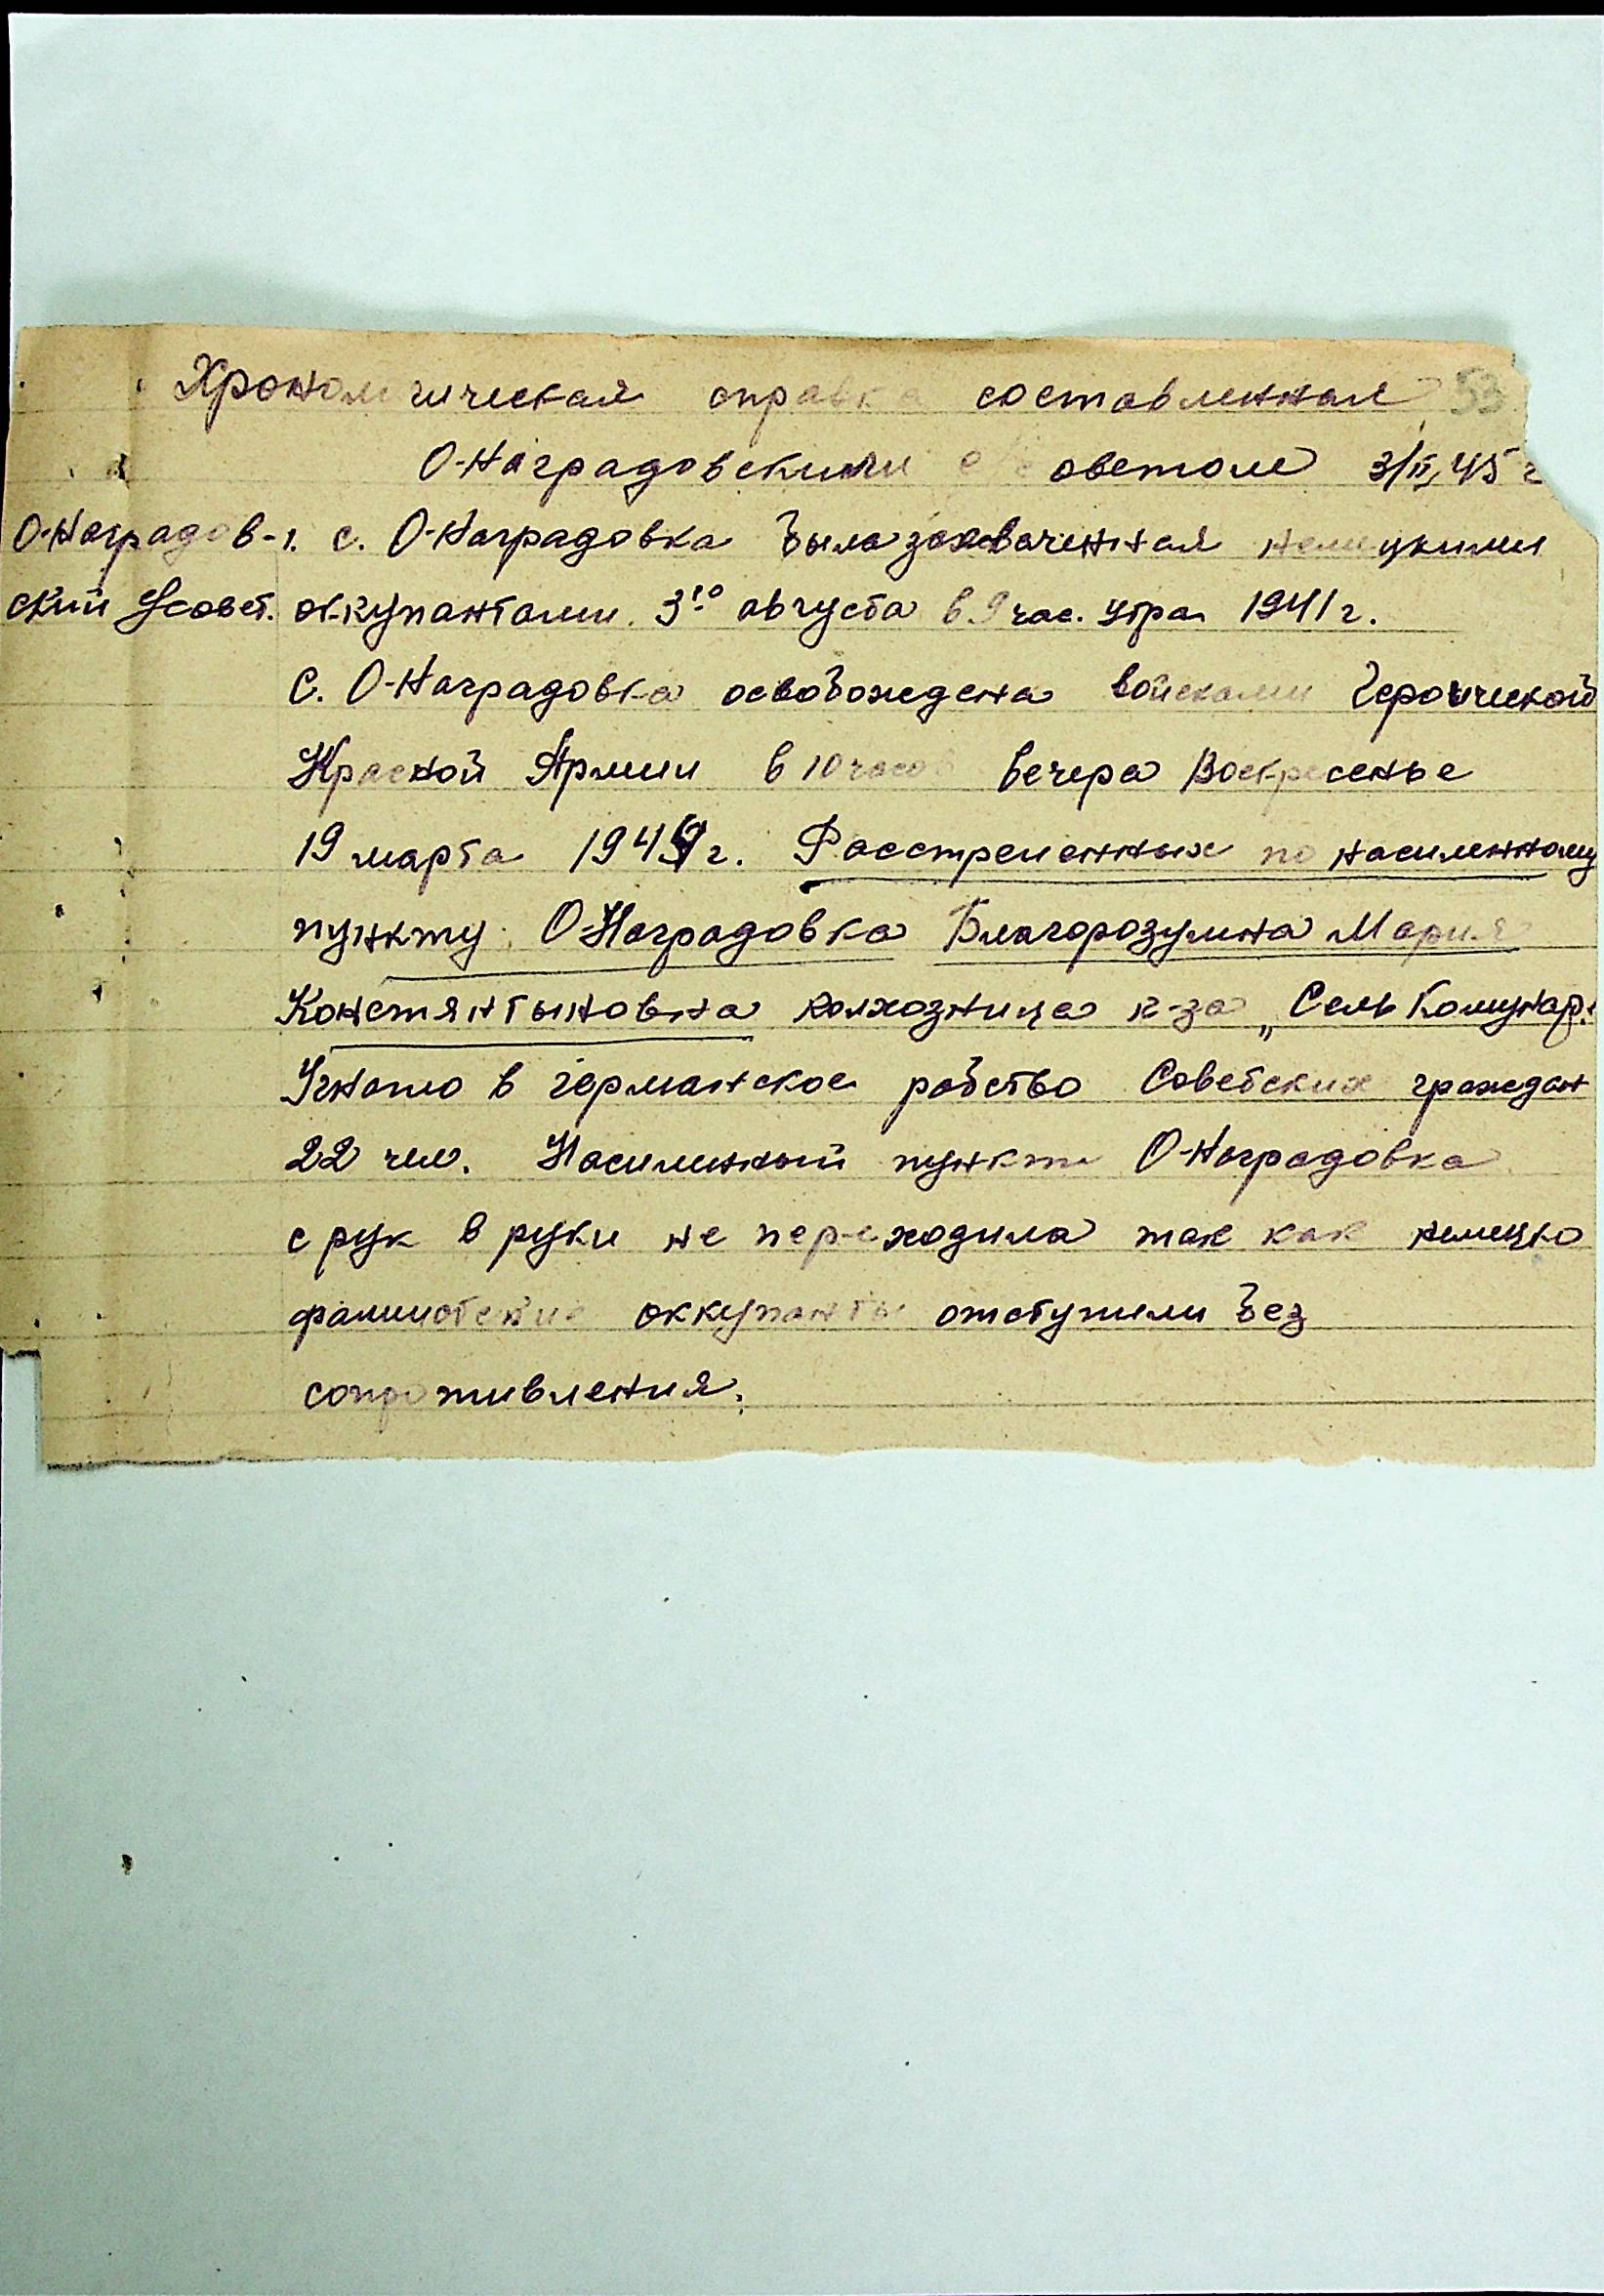 Хронологическая справка составленная 53
О-Наградовским с/советом 3/II 45 г
О-Наградов- 1. с. О-Наградовка была захваченная немецкими
ский с/совет. оккупантами 3го августа в 9 час. утра 1941 г.
С. О-Наградовка освобождена войсками Героической
Красной Армии в 10 часов вечера Воскресенье
19 марта 1944 г. Расстреленных по насиленному
пункту О-Наградовка Благоразумна Мария
Констянтыновна колхозница к-за „Сель Комунар.
Угнато в германское рабство Советских граждан
22 чел. Насиленный пункт О-Наградовка
с рук в руки не переходила так как немецко
фашистские оккупанты отступили без
сопротивления.